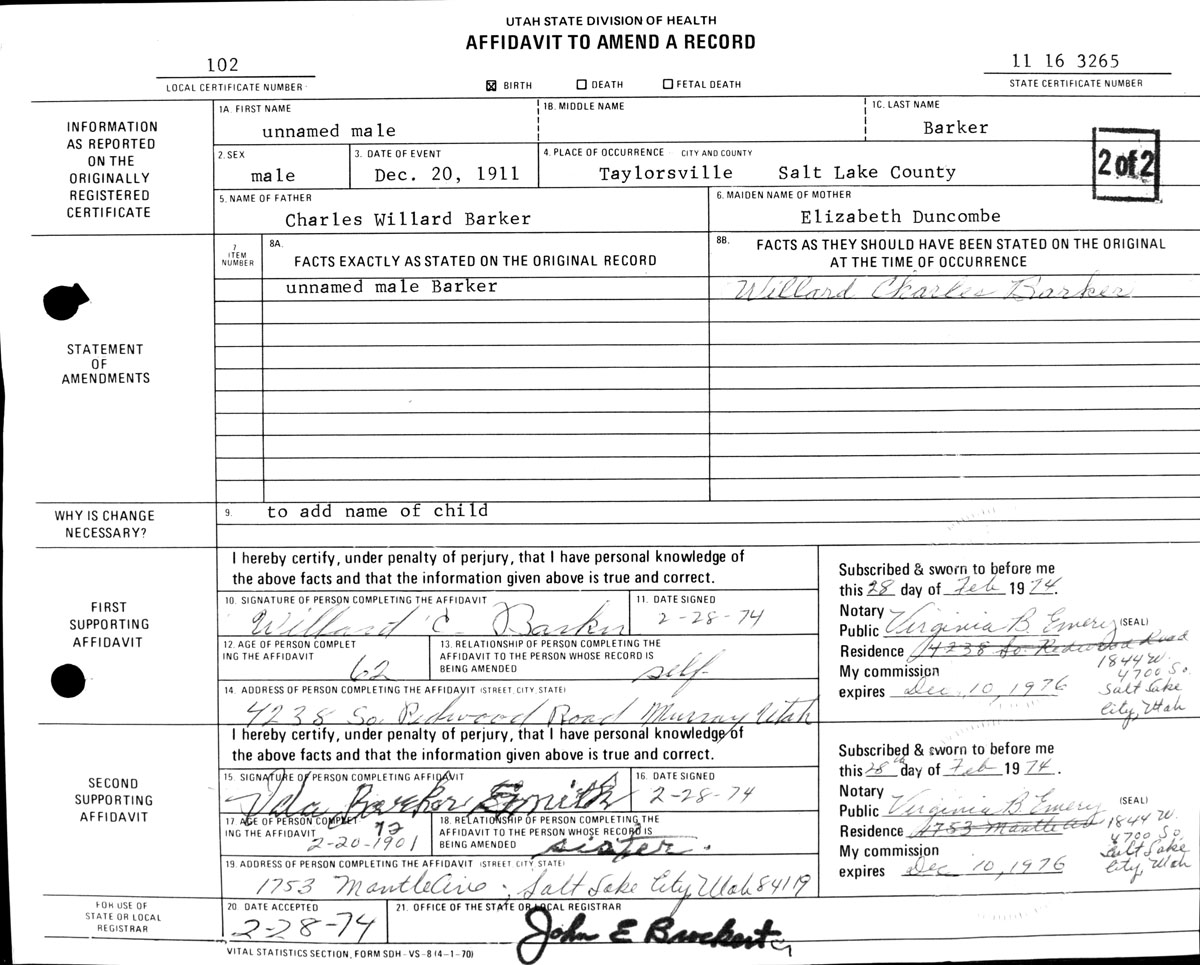 UTAH STATE DIVISION OF HEALTH
AFFIDAVIT TO AMEND A RECORD
102
LOCAL CERTIFICATE NUMBER
☒ BIRTH ☐ DEATH ☐ FETAL DEATH
11 16 3265
STATE CERTIFICATE NUMBER
INFORMATION
AS REPORTED
ON THE
ORIGINALLY
REGISTERED
CERTIFICATE
1A. FIRST NAME 1B. MIDDLE NAME 1C. LAST NAME
unnamed male Barker
2. SEX 3. DATE OF EVENT 4. PLACE OF OCCURRENCE - CITY AND COUNTY
male Dec. 20, 1911 Taylorsville Salt Lake County
2 of 2
5. NAME OF FATHER 6. MAIDEN NAME OF MOTHER
Charles Willard Barker Elizabeth Duncombe
STATEMENT
OF
AMENDMENTS
7
ITEM
NUMBER
8A.
FACTS EXACTLY AS STATED ON THE ORIGINAL RECORD
8B. FACTS AS THEY SHOULD HAVE BEEN STATED ON THE ORIGINAL
AT THE TIME OF OCCURRENCE
unnamed male Barker Willard Charles Barker
WHY IS CHANGE
NECESSARY?
9. to add name of child
FIRST
SUPPORTING
AFFIDAVIT
I hereby certify, under penalty of perjury, that I have personal knowledge of
the above facts and that the information given above is true and correct.
10. SIGNATURE OF PERSON COMPLETING THE AFFIDAVIT 11. DATE SIGNED
Willard C. Barker 2-28-74
12. AGE OF PERSON COMPLET
ING THE AFFIDAVIT
62
13. RELATIONSHIP OF PERSON COMPLETING THE
AFFIDAVIT TO THE PERSON WHOSE RECORD IS
BEING AMENDED self
14. ADDRESS OF PERSON COMPLETING THE AFFIDAVIT (STREET, CITY, STATE)
4238 So Redwood Road Murray Utah
Subscribed & sworn to before me
this 28 day of Feb 1974.
Notary
Public Virginia B. Emery (SEAL)
Residence 4238 So. Redwood Road
1844 W.
4700 So.
Salt Lake
City, Utah
My commission
expires Dec. 10, 1976
SECOND
SUPPORTING
AFFIDAVIT
I hereby certify, under penalty of perjury, that I have personal knowledge of
the above facts and that the information given above is true and correct.
15. SIGNATURE OF PERSON COMPLETING AFFIDAVIT 16. DATE SIGNED
Barker Smith 2-28-74
17. AGE OF PERSON COMPLET
ING THE AFFIDAVIT 72
2-20-1901
18. RELATIONSHIP OF PERSON COMPLETING THE
AFFIDAVIT TO THE PERSON WHOSE RECORD IS
BEING AMENDED sister.
19. ADDRESS OF PERSON COMPLETING THE AFFIDAVIT (STREET, CITY, STATE)
1753 Salt Lake City, Utah 84119
Subscribed & sworn to before me
this 28th day of Feb 1974.
Notary
Public Virginia B Emery (SEAL)
Residence 1753
1844 W.
4700 So.
Salt Lake
City, Utah
My commission
expires Dec 10, 1976
FOR USE OF
STATE OR LOCAL
REGISTRAR
20 DATE ACCEPTED
2-28-74
21. OFFICE OF THE STATE OR LOCAL REGISTRAR
John E Brockert
VITAL STATISTICS SECTION, FORM SDH-VS-8 (4-1-70)